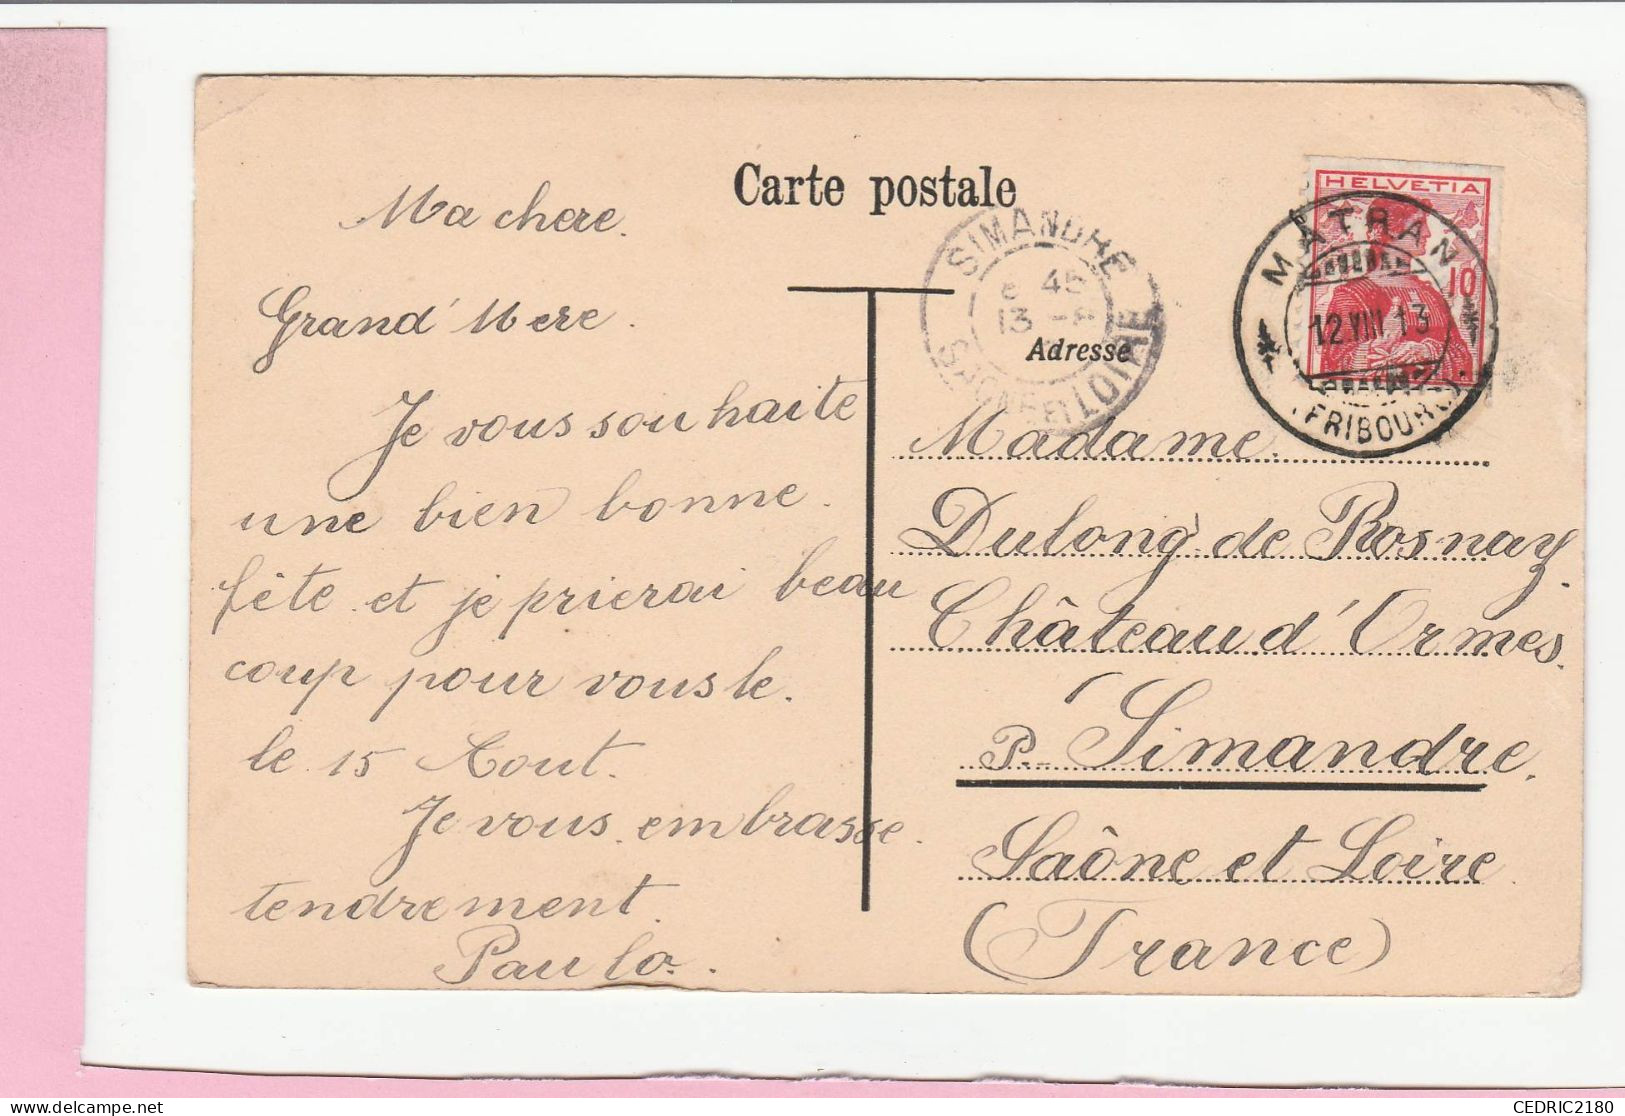 Carte postale
Ma chere.
Grand' Mere.
Je vous souhaite
une bien bonne.
fête et je prierai beau
coup pour vous le.
le 15 Aout.
Je vous embrasse.
tendrement.
Paulo.
SIMANDRE
45
13 -
SAONE ET LOIRE
HELVETIA
10
MATRAN
12.VIII.13
(FRIBOURG)
Adresse
Madame.
Dulong de Rosnay.
Château d'Ormes.
P. Simandre.
Saône et Loire.
(France)
CEDRIC2180